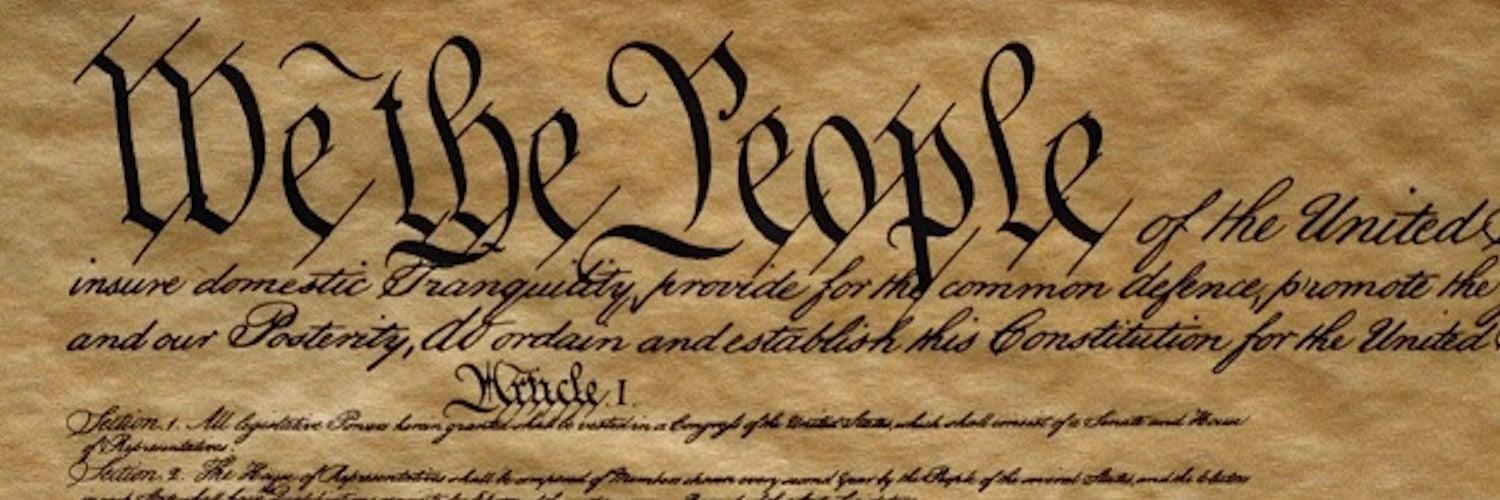 We the People of the United
insure domestic Tranquility, provide for the common defence, promote the
and our Posterity, do ordain and establish this Constitution for the United
Article. I.
Section. 1. All legislative Powers herein granted shall be vested in a Congress of the United States, which shall consist of a Senate and House
of Representatives.
Section. 2. The House of Representatives shall be composed of Members chosen every second Year by the People of the several States, and the Electors